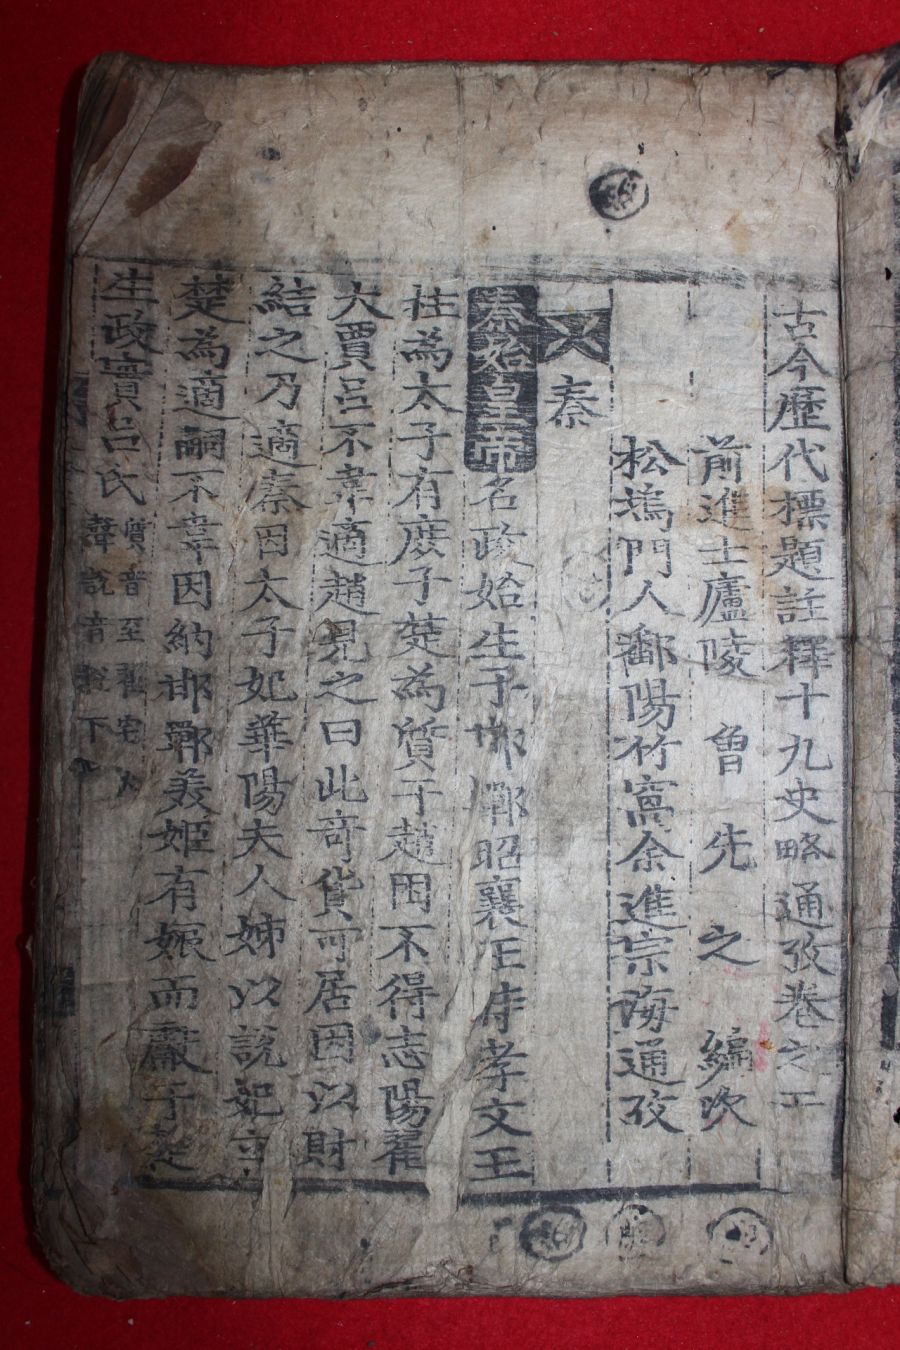 古今歷代標題註釋十九史略通攷卷之二
前進士廬陵 曾 先 之 編次
松塢門人鄱陽竹窩余進宗海通攷
秦
秦始皇帝名政始生于邯鄲昭襄王時孝文王
柱為太子有庶子楚為質于趙困不得志陽翟
大賈呂不韋適趙見之曰此奇貨可居因以財
結之乃適秦因太子妃華陽夫人姊以說妃立
楚為適嗣不韋因納邯鄲美姬有娠而獻于楚
生政實呂氏
質音至
說音稅下